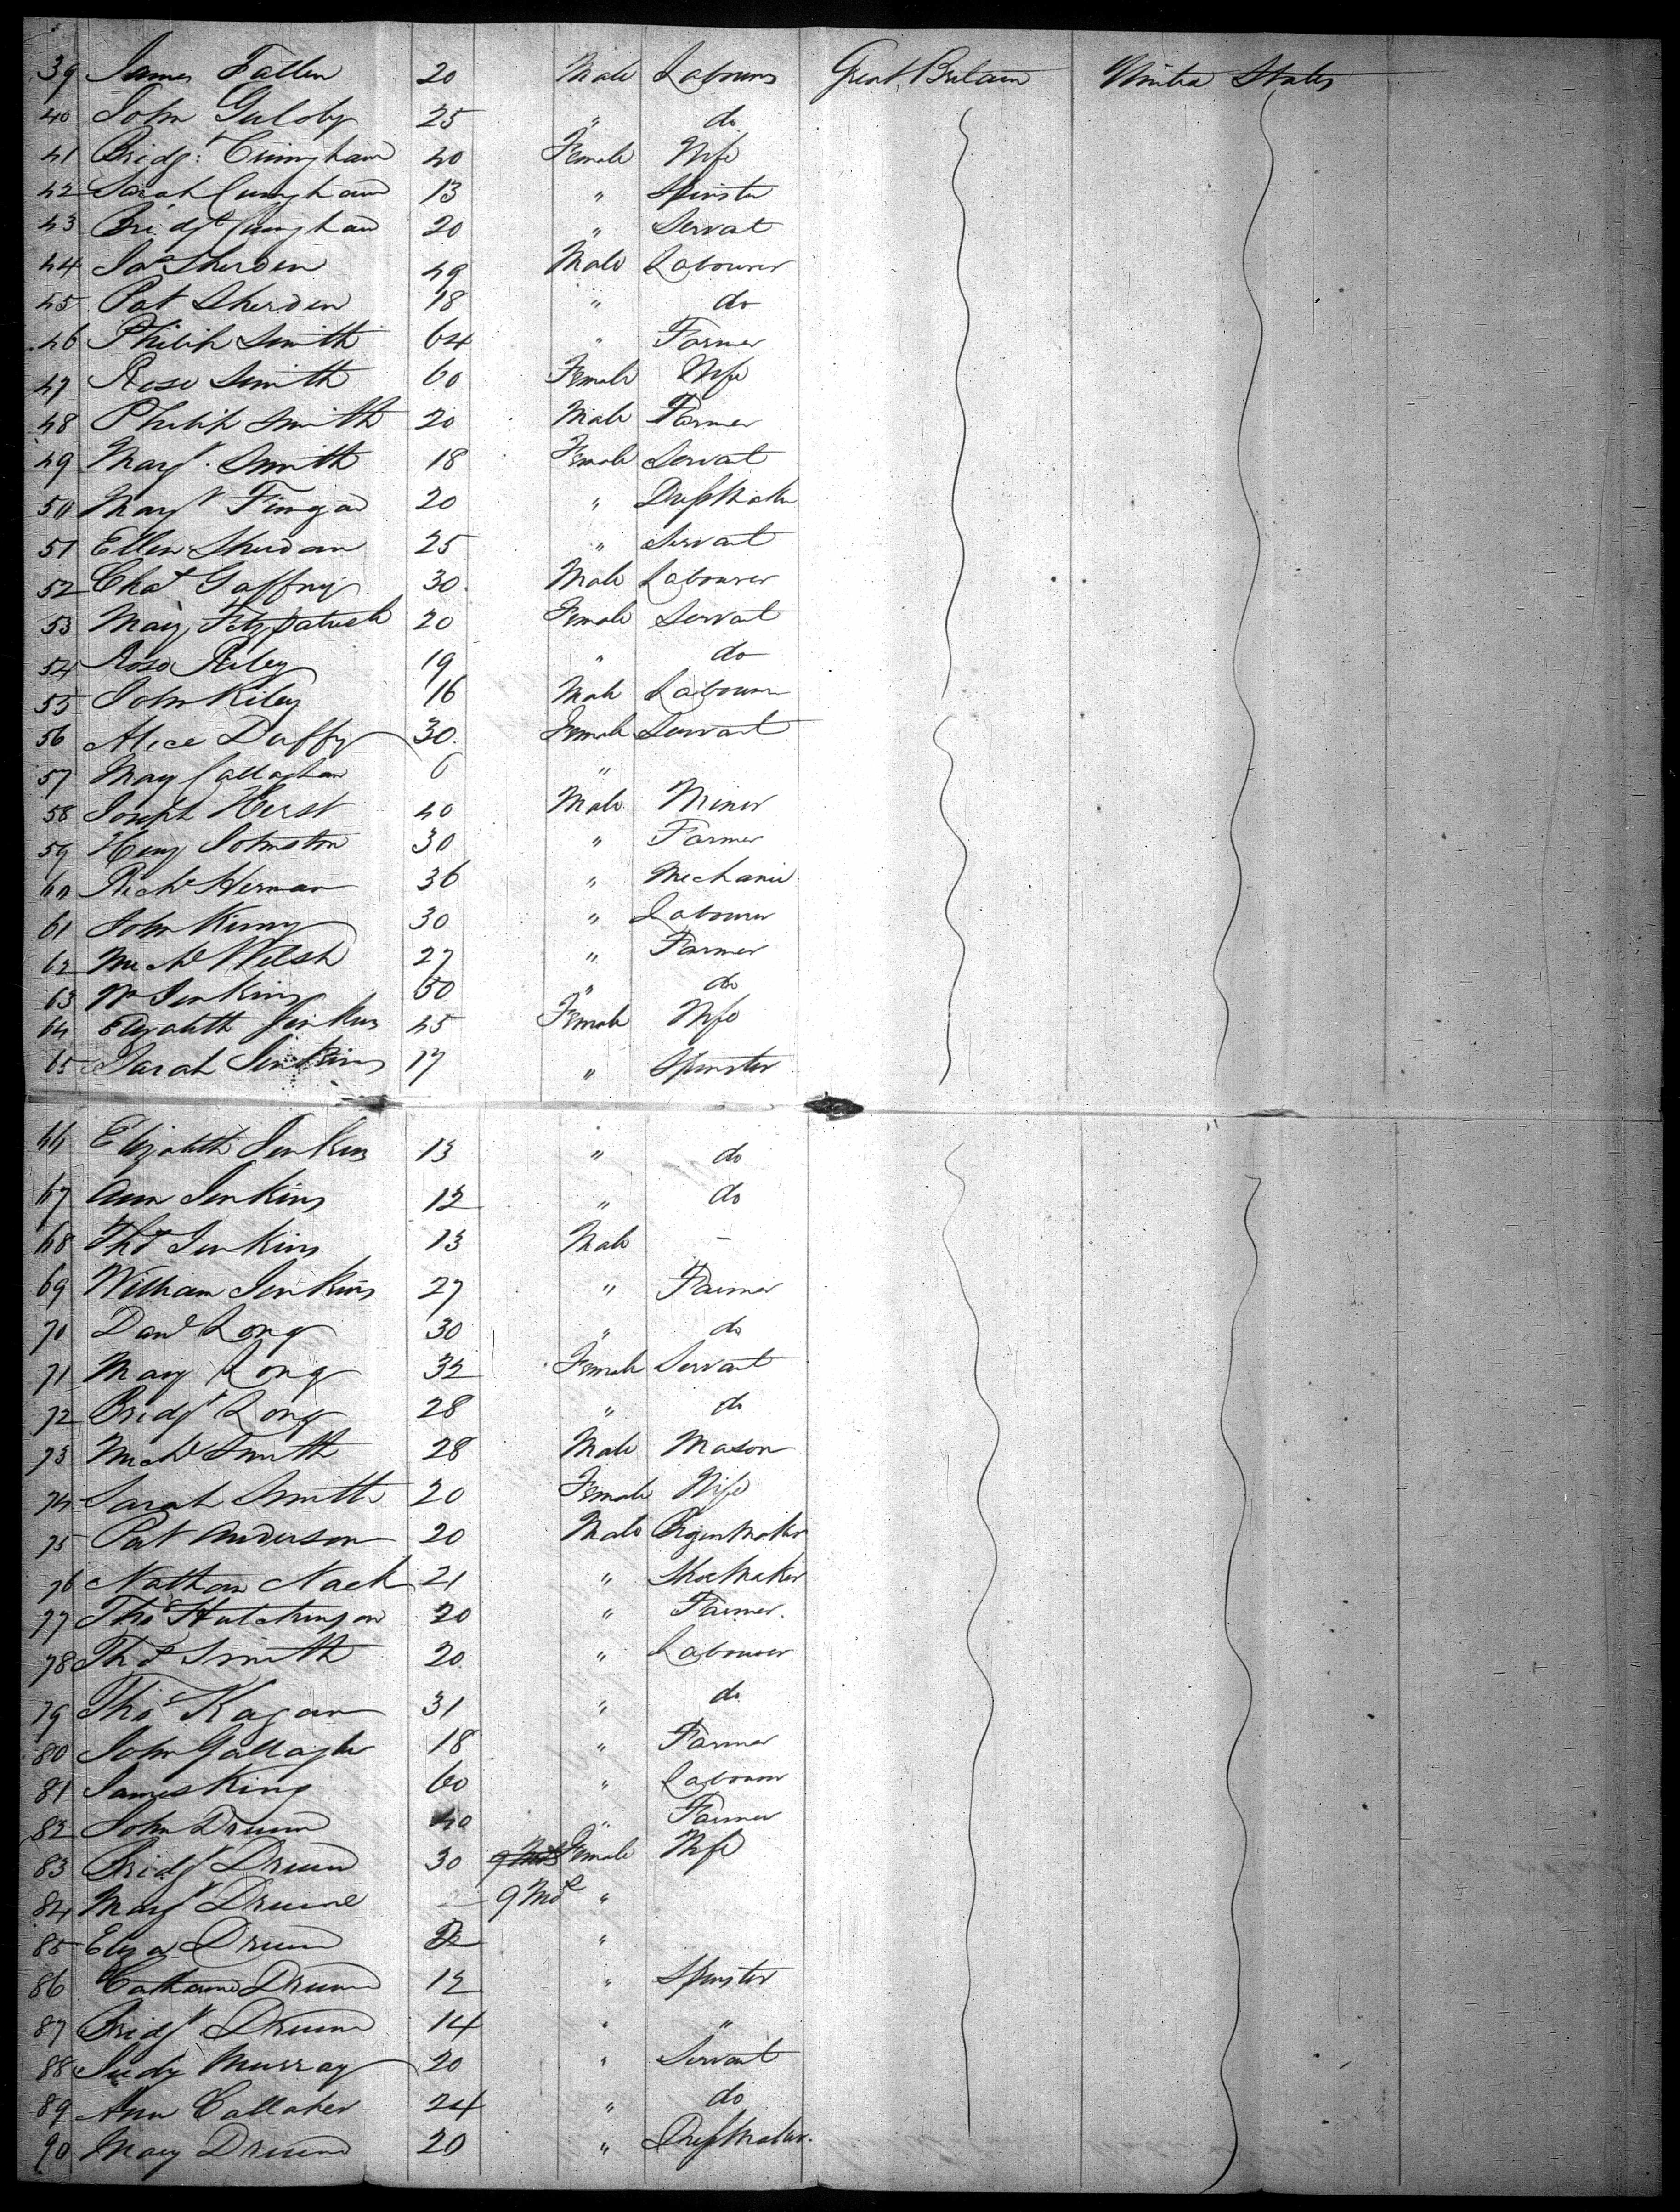 39 James Fallen 20 Male Labourer Great Britain United States
40 John Guloby 25 " do
41 Bridgt Cuningham 40 Female Wife
42 Sarah Cuningham 13 " Spinster
43 Bridgt Cuningham 20 " Servat
44 Jas Sherden 49 Male Labourer
45 Pat Sherden 18 " do
46 Philip Smith 64 " Farmer
47 Rose Smith 60 Female Wife
48 Philip Smith 20 Male Farmer
49 Margt Smith 18 Female Servat
50 Margt Finigan 20 " DressMaker
51 Ellen Sheridan 25 " Servant
52 Chas Gaffny 30 Male Labourer
53 Mary Fitzpatrick 20 Female Servat
54 Rose Riley 19 " do
55 John Riley 16 Male Labourer
56 Alice Duffy 30 Female Servant
57 Mary Callaghan 6 "
58 Joseph Herst 40 Male Miner
59 Heny Johnston 30 " Farmer
60 Richd Herman 36 " Mechanic
61 John Kinny 30 " Labourer
62 Michl Welsh 27 " Farmer
63 Wm Jenkins 50 " do
64 Elizabeth Jenkins 45 Female Wife
65 Sarah Jenkins 17 " Spinster
66 Elizabeth Jenkins 13 " do
67 Ann Jenkins 12 " do
68 Thos Jenkins 13 Male -
69 William Jenkins 27 " Farmer
70 Danl Long 30 " do
71 Mary Long 32 Female Servant
72 Bridgt Long 28 " do
73 Michl Smith 28 Male Mason
74 Sarah Smith 20 Female Wife
75 Pat Anderson 20 Male
76 Nathan Nack 21 " ShoeMaker
77 Thos Hutchinson 20 " Farmer
78 Thos Smith 20 " Labourer
79 Thos Kagan 31 " do
80 John Gallagher 18 " Farmer
81 James King 60 " Labourer
82 John Drum 40 " Farmer
83 Bridgt Drum 30 Female Wife
84 Margt Drum 9 Mos "
85 Eliza Drum "
86 Catharine Drum 12 " Spinster
87 Bridgt Drum 14 " "
88 Judy Murray 20 " Servant
89 Ann Callaher 24 " do
90 Mary Drum 20 " DressMaker